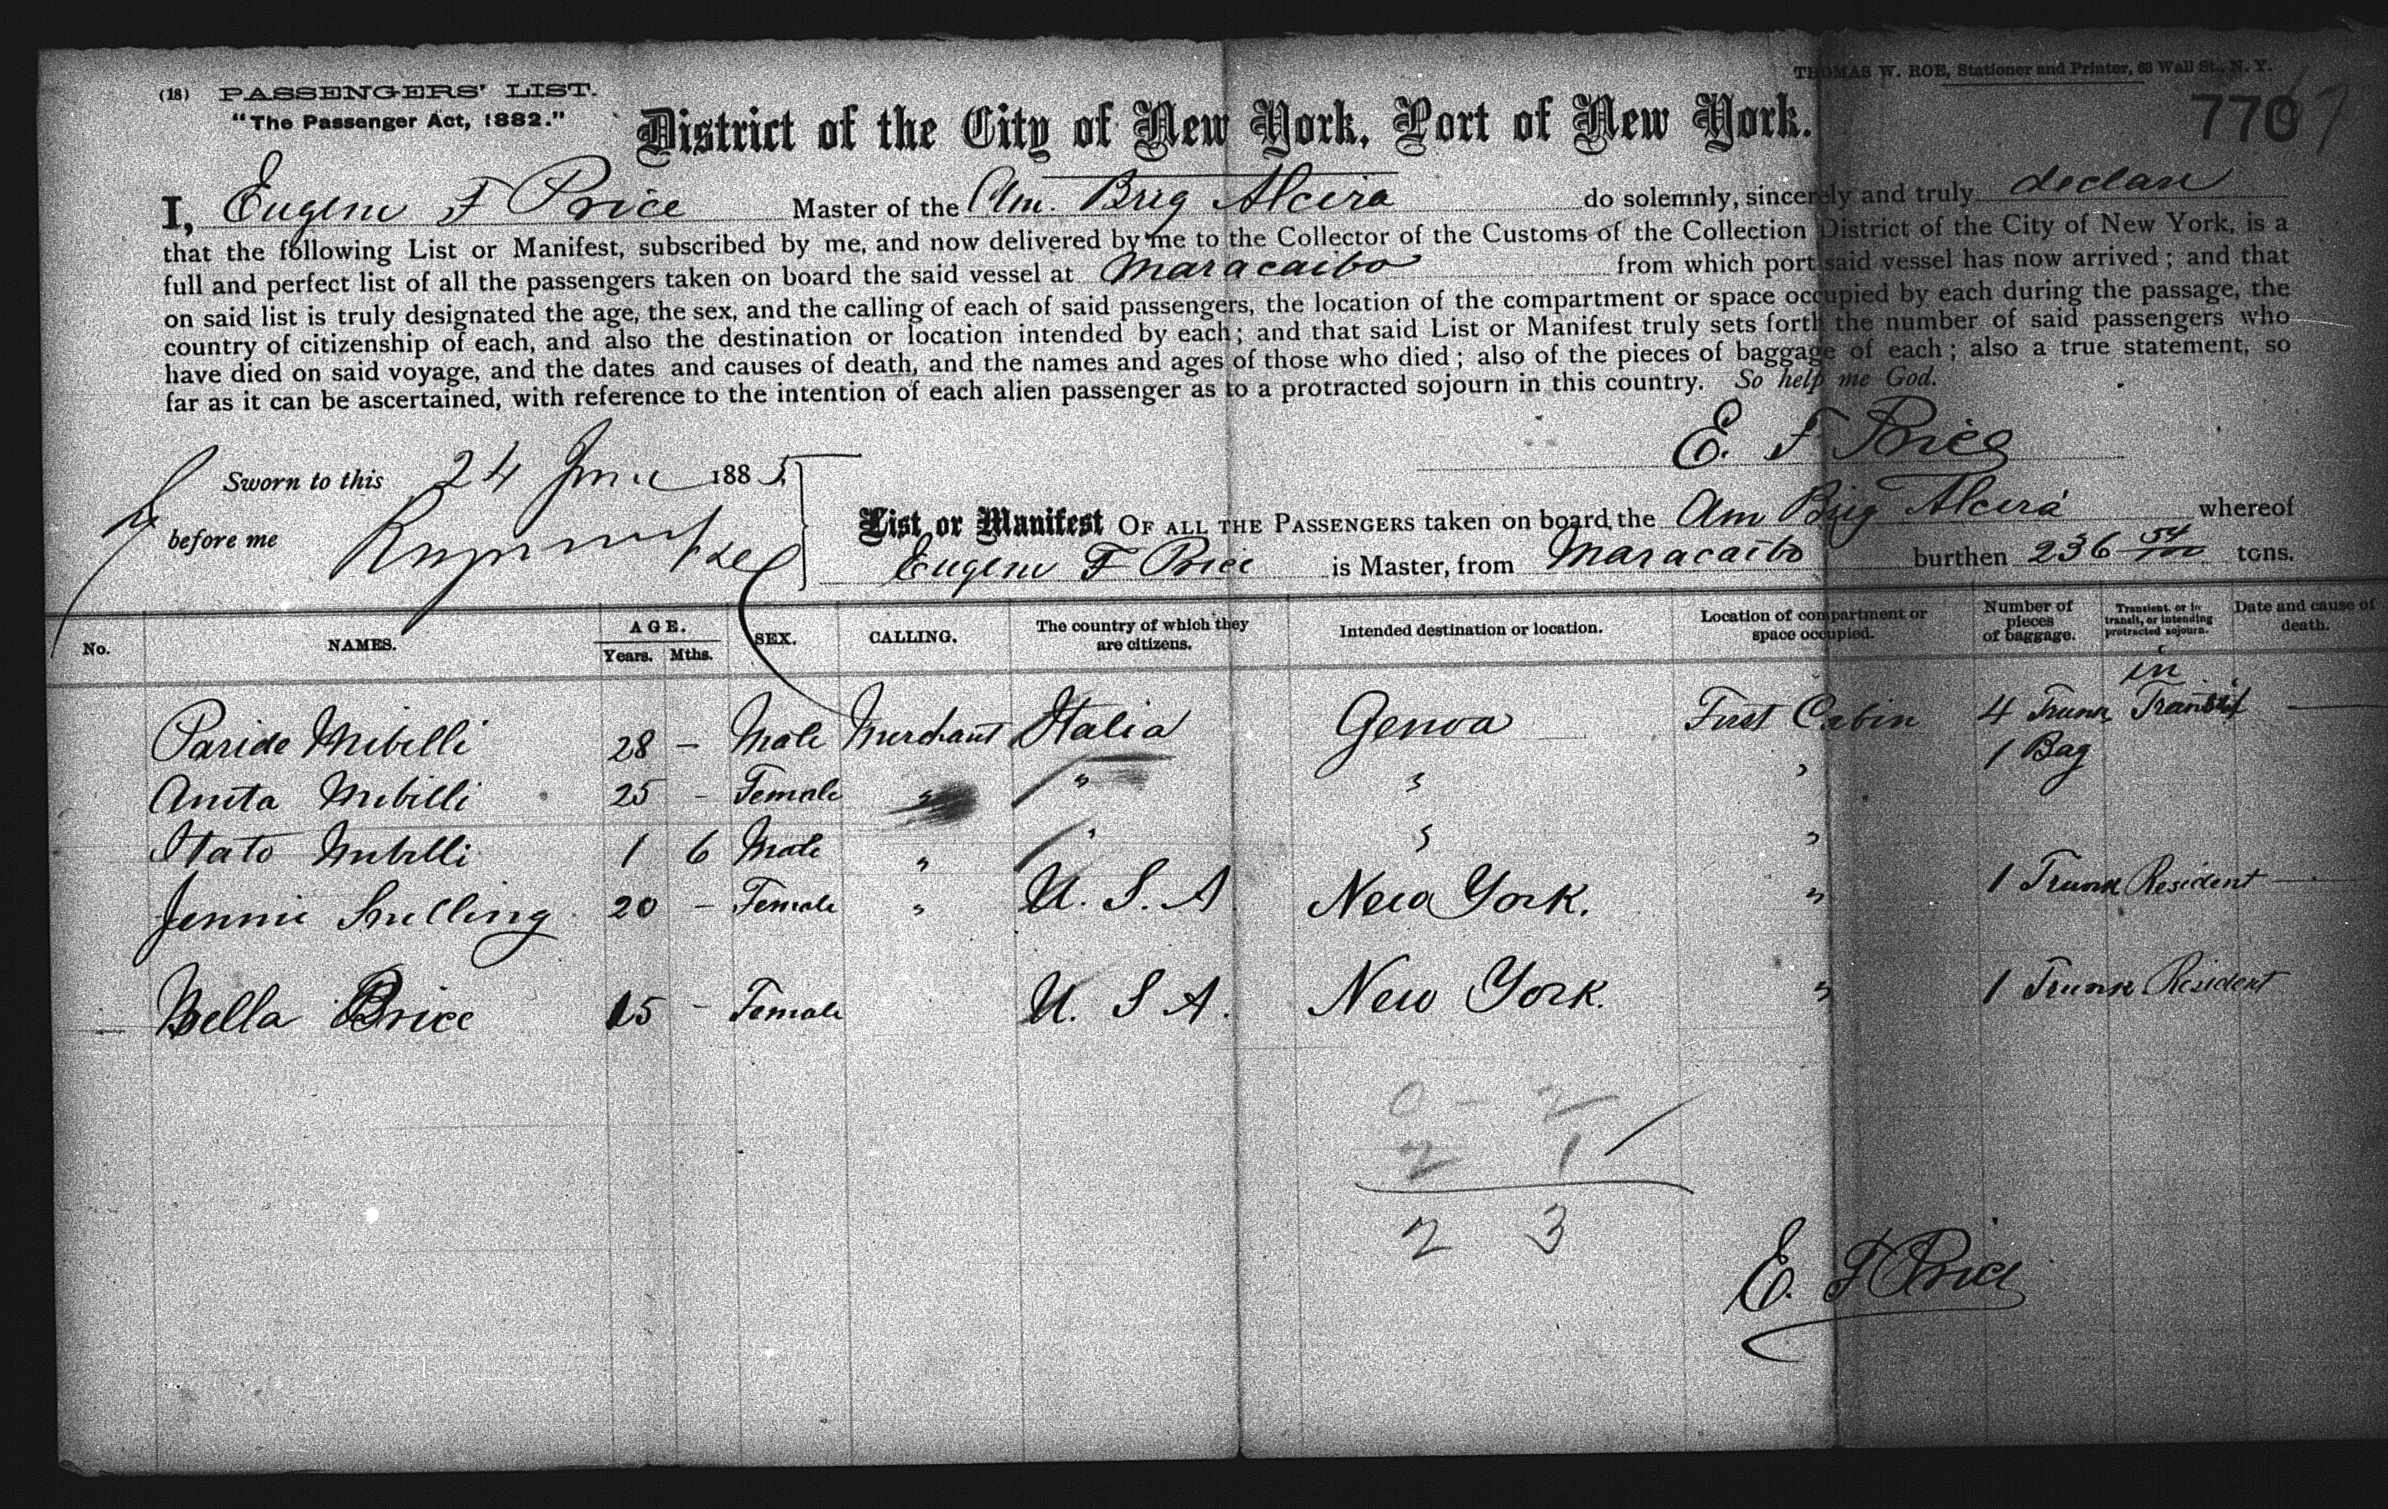 (18) PASSENGERS' LIST.
"The Passenger Act, 1882."
THOMAS W. ROE, Stationer and Printer, 63 Wall St., N. Y.
District of the City of New York, Port of New York.
770
7
I, Eugene F Price Master of the Am. Brig Alcira do solemnly, sincerely and truly declare
that the following List or Manifest, subscribed by me, and now delivered by me to the Collector of the Customs of the Collection District of the City of New York, is a
full and perfect list of all the passengers taken on board the said vessel at Maracaibo from which port said vessel has now arrived; and that
on said list is truly designated the age, the sex, and the calling of each of said passengers, the location of the compartment or space occupied by each during the passage, the
country of citizenship of each, and also the destination or location intended by each; and that said List or Manifest truly sets forth the number of said passengers who
have died on said voyage, and the dates and causes of death, and the names and ages of those who died; also of the pieces of baggage of each; also a true statement, so
far as it can be ascertained, with reference to the intention of each alien passenger as to a protracted sojourn in this country. So help me God.
E. F Price
Sworn to this 24 June 1885
before me
List or Manifest OF ALL THE PASSENGERS taken on board the Am Brig Alcira whereof
Eugene F Price is Master, from Maracaibo burthen 236 54/100 tons.
No. NAMES. AGE. Years. Mths. SEX. CALLING. The country of which they are citizens. Intended destination or location. Location of compartment or space occupied. Number of pieces of baggage. Transient, or in transit, or intending protracted sojourn. Date and cause of death.
Paride Mibelli 28 – Male Merchant Italia Genoa First Cabin 4 Trunk in Transit —
1 Bag
Anita Mibilli 25 – Female " " " "
Itato Mibilli 1 6 Male " " " "
Jennie Snelling 20 – Female " U. S. A New York. " 1 Trunk Resident —
Bella Price 15 – Female U. S A. New York. " 1 Trunk Resident
0 – 2
2 1
2 3
E. F Price